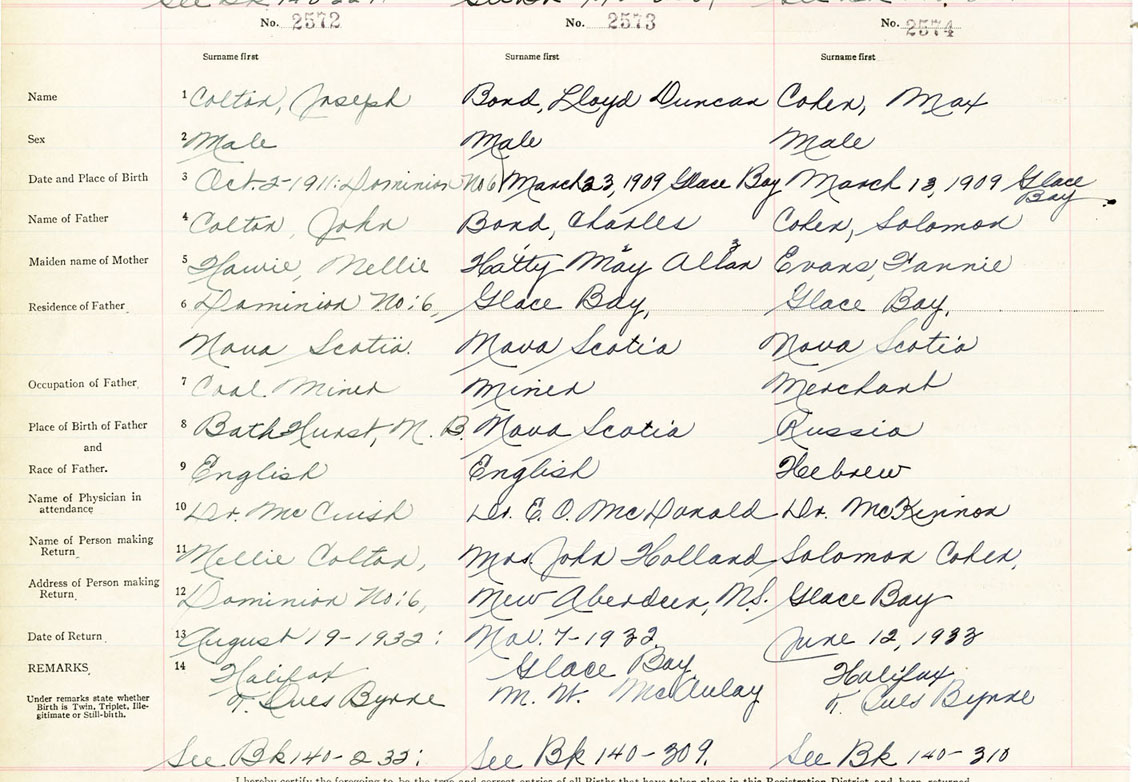 No. 2572 No. 2573 No. 2574
Surname first Surname first Surname first
Name 1 Colton, Joseph Bond, Lloyd Duncan Cohen, Max
Sex 2 Male Male Male
Date and Place of Birth 3 Oct-2-1911: Dominion No 6 March 23, 1909 Glace Bay March 13, 1909 Glace Bay
Name of Father 4 Colton, John Bond, Charles Cohen, Solomon
Maiden name of Mother 5 Howie, Nellie Hatty May Allan Evans, Fannie
Residence of Father 6 Dominion No: 6, Glace Bay, Glace Bay,
Nova Scotia. Nova Scotia Nova Scotia
Occupation of Father 7 Coal Miner Miner Merchant
Place of Birth of Father 8 BathHurst, N. B. Nova Scotia Russia
and
Race of Father. 9 English English Hebrew
Name of Physician in attendance 10 Dr. McCuish Dr. E. O. McDonald Dr. McKinnon
Name of Person making Return 11 Nellie Colton, Mrs. John Holland Solomon Cohen,
Address of Person making Return 12 Dominion No: 6, New Aberdeen, N.S. Glace Bay
Date of Return 13 August 19-1932: Nov. 7-1932 June 12, 1933
REMARKS 14 Halifax Glace Bay Halifax
Under remarks state whether Birth is Twin, Triplet, Ille-gitimate or Still-birth. Byrne M. W. McAulay Byrne
See Bk 140-233: See Bk 140-309. See Bk 140-310
I hereby certify the foregoing to be the true and correct entries of all Births that have taken place in this Registration District and been returned